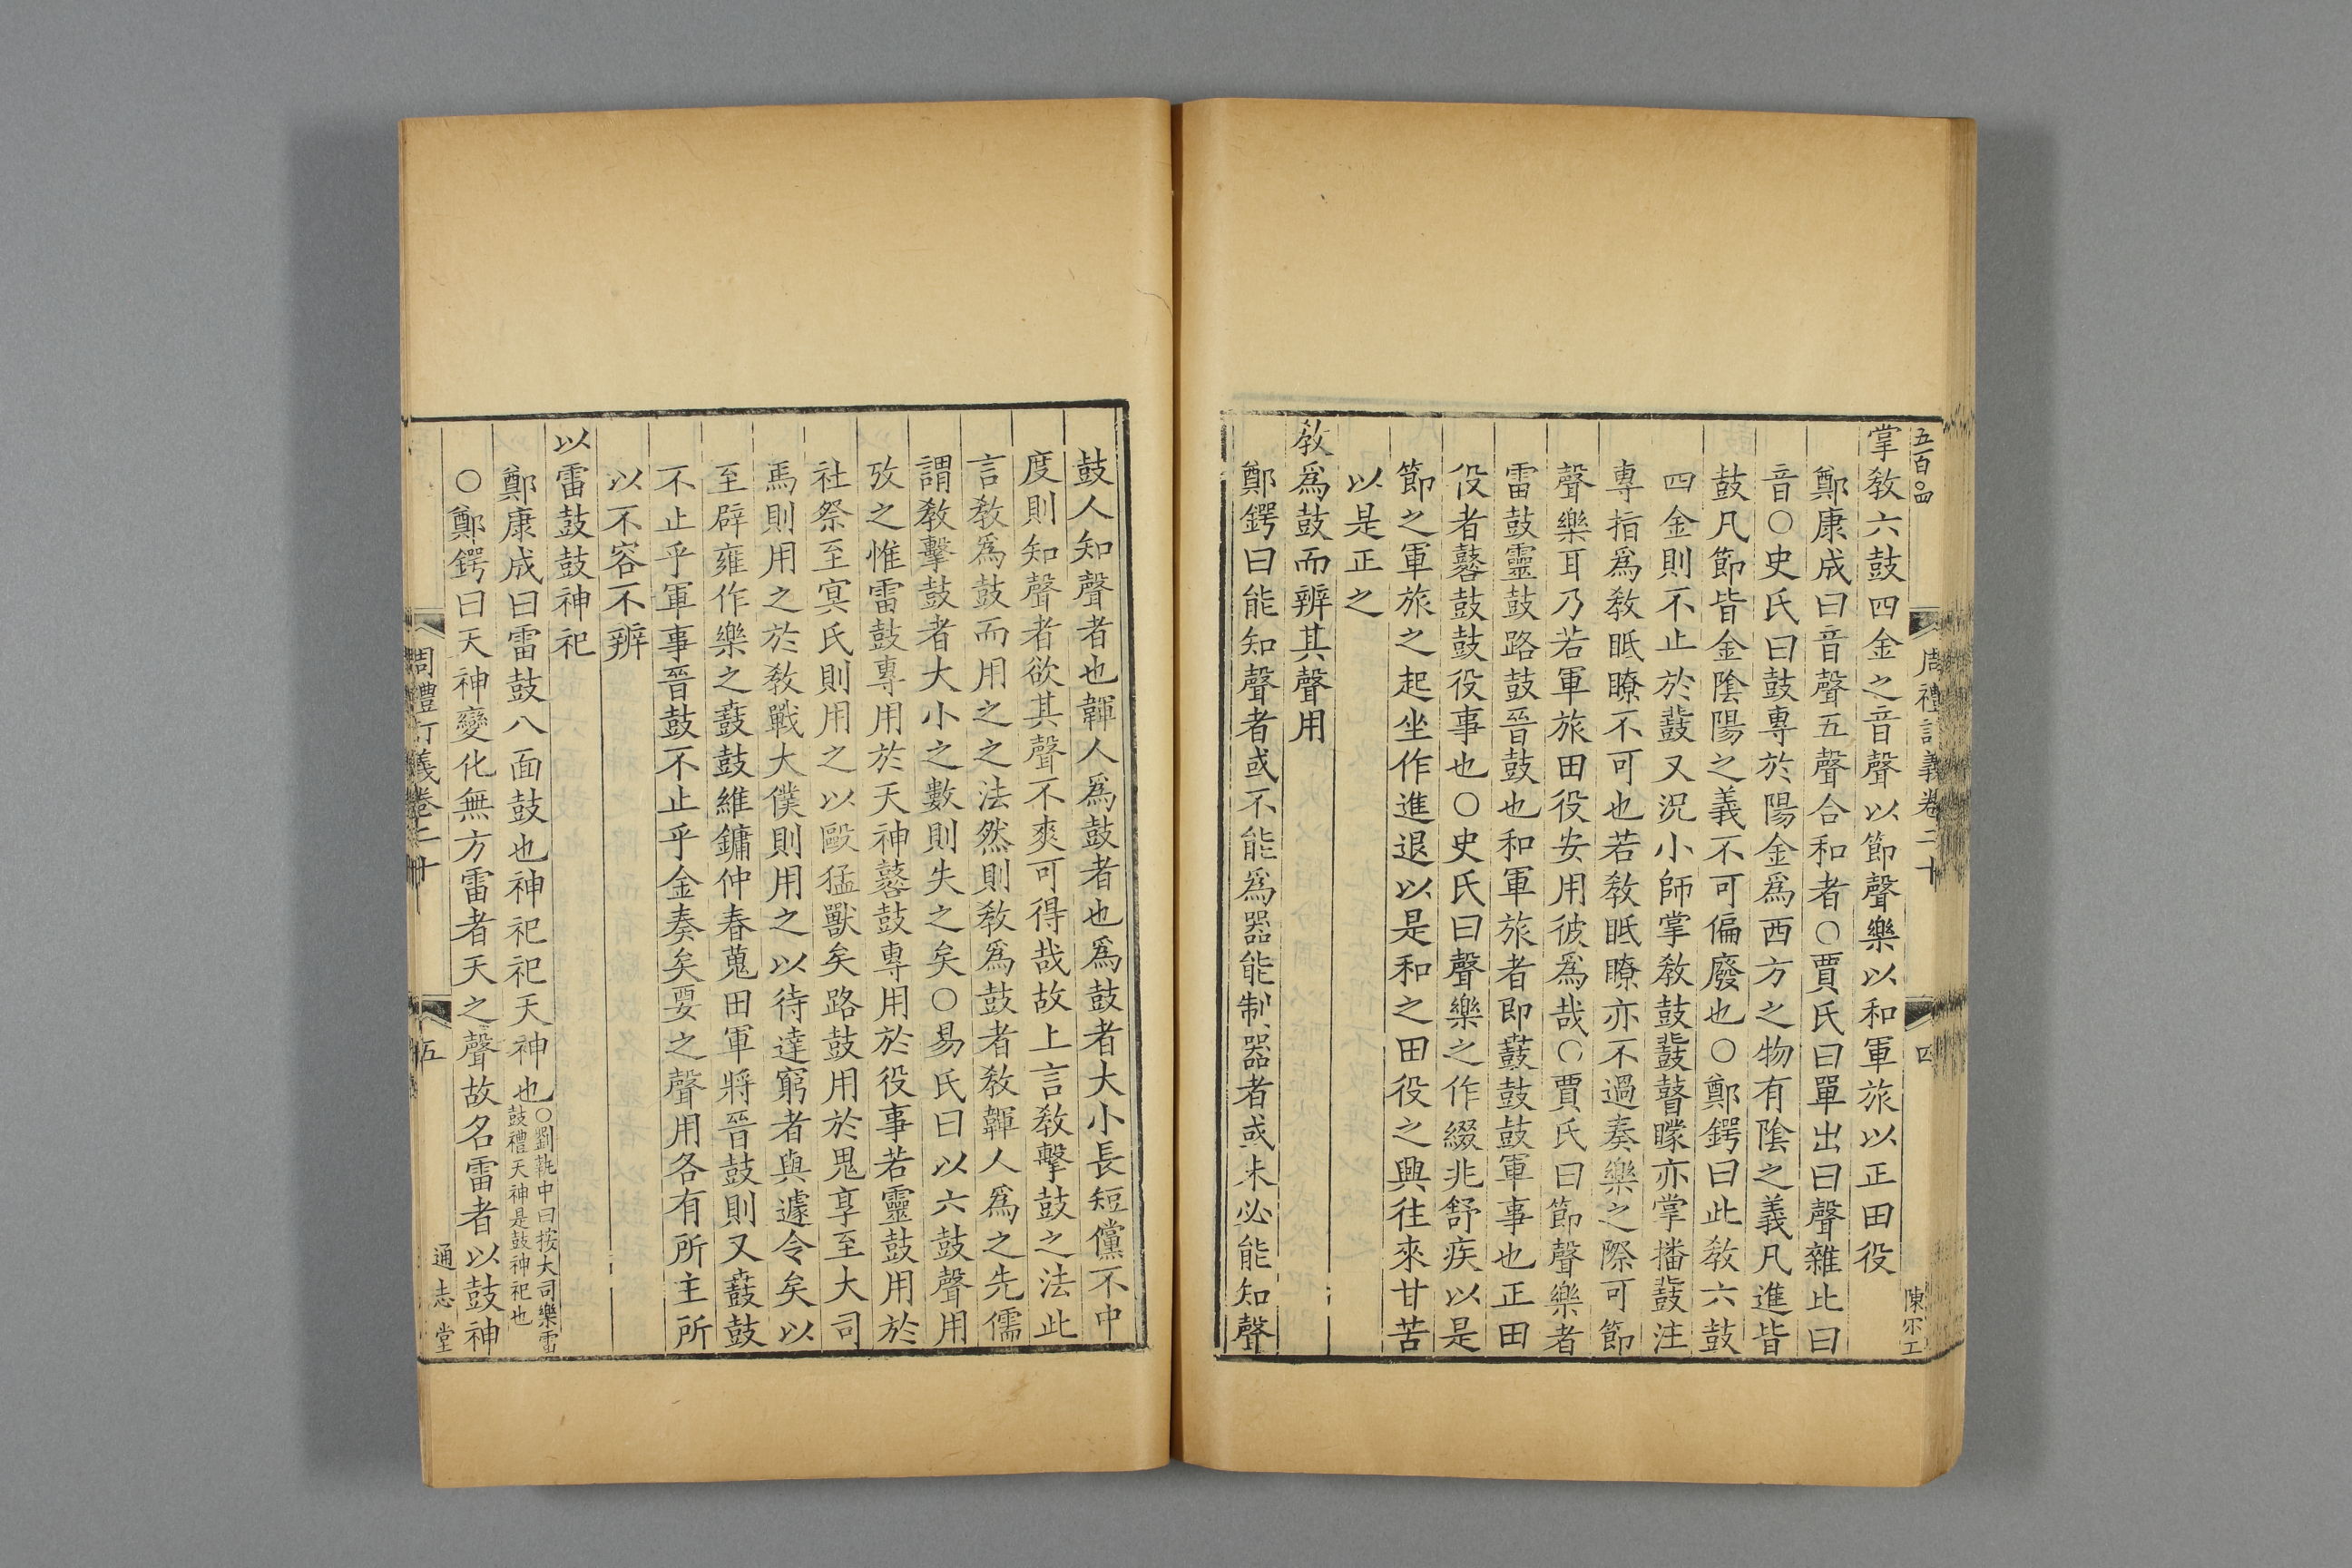 五百〇四
周禮訂義卷二十
四
陳尔工
掌敎六鼓四金之音聲以節聲樂以和軍旅以正田役
鄭康成曰音聲五聲合和者〇賈氏曰單出曰聲雜比曰
音〇史氏曰鼓專於陽金爲西方之物有陰之義凡進皆
鼓凡節皆金陰陽之義不可偏廢也〇鄭鍔曰此敎六鼓
四金則不止於鼗又況小師掌敎鼓鼗瞽矇亦掌播鼗注
專指爲敎眡瞭不可也若敎眡瞭亦不過奏樂之際可節
聲樂耳乃若軍旅田役安用彼爲哉〇賈氏曰節聲樂者
雷鼓靈鼓路鼓晉鼓也和軍旅者即鼖鼓鼓軍事也正田
役者鼛鼓鼓役事也〇史氏曰聲樂之作綴兆舒疾以是
節之軍旅之起坐作進退以是和之田役之興往來甘苦
以是正之
敎爲鼓而辨其聲用
鄭鍔曰能知聲者或不能爲器能制器者或未必能知聲
鼓人知聲者也韗人爲鼓者也爲鼓者大小長短儻不中
度則知聲者欲其聲不爽可得哉故上言敎擊鼓之法此
言敎爲鼓而用之之法然則敎爲鼓者敎韗人爲之先儒
謂敎擊鼓者大小之數則失之矣〇易氏曰以六鼓聲用
攷之惟雷鼓專用於天神鼛鼓專用於役事若靈鼓用於
社祭至冥氏則用之以毆猛獸矣路鼓用於鬼享至大司
馬則用之於敎戰大僕則用之以待達窮者與遽令矣以
至辟雍作樂之鼖鼓維鏞仲春蒐田軍將晉鼓則又鼖鼓
不止乎軍事晉鼓不止乎金奏矣要之聲用各有所主所
以不容不辨
以雷鼓鼓神祀
鄭康成曰雷鼓八面鼓也神祀祀天神也〇劉執中曰按大司樂雷
鼓禮天神是鼓神祀也
〇鄭鍔曰天神變化無方雷者天之聲故名雷者以鼓神
周禮訂義卷二十
五
通志堂